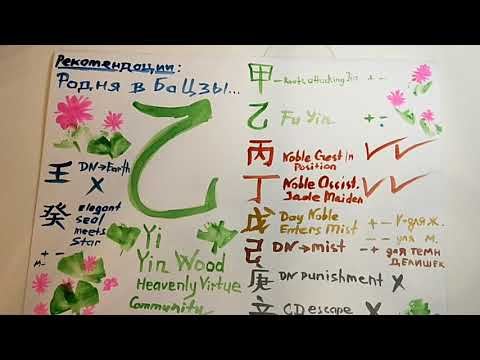 Рекомендации:
Родня в БаЦзы...
乙
壬 DN→Earth
X
癸 Elegant
seal
meets
Star
+ -
м -
Yi
Yin Wood
Heavenly Virtue
Community
甲 - Roots attacking Yin + -
乙 Fu Yin + ÷
丙 Noble Guest in
Position ✓✓
丁 Noble Assist.
Jade Maiden ✓✓
戊 Day Noble
Enters Mist + - У-для ж.
- - для м.
己 DN→mist -+ для темн
делишек
庚 DN punishment X
辛 CD escape X